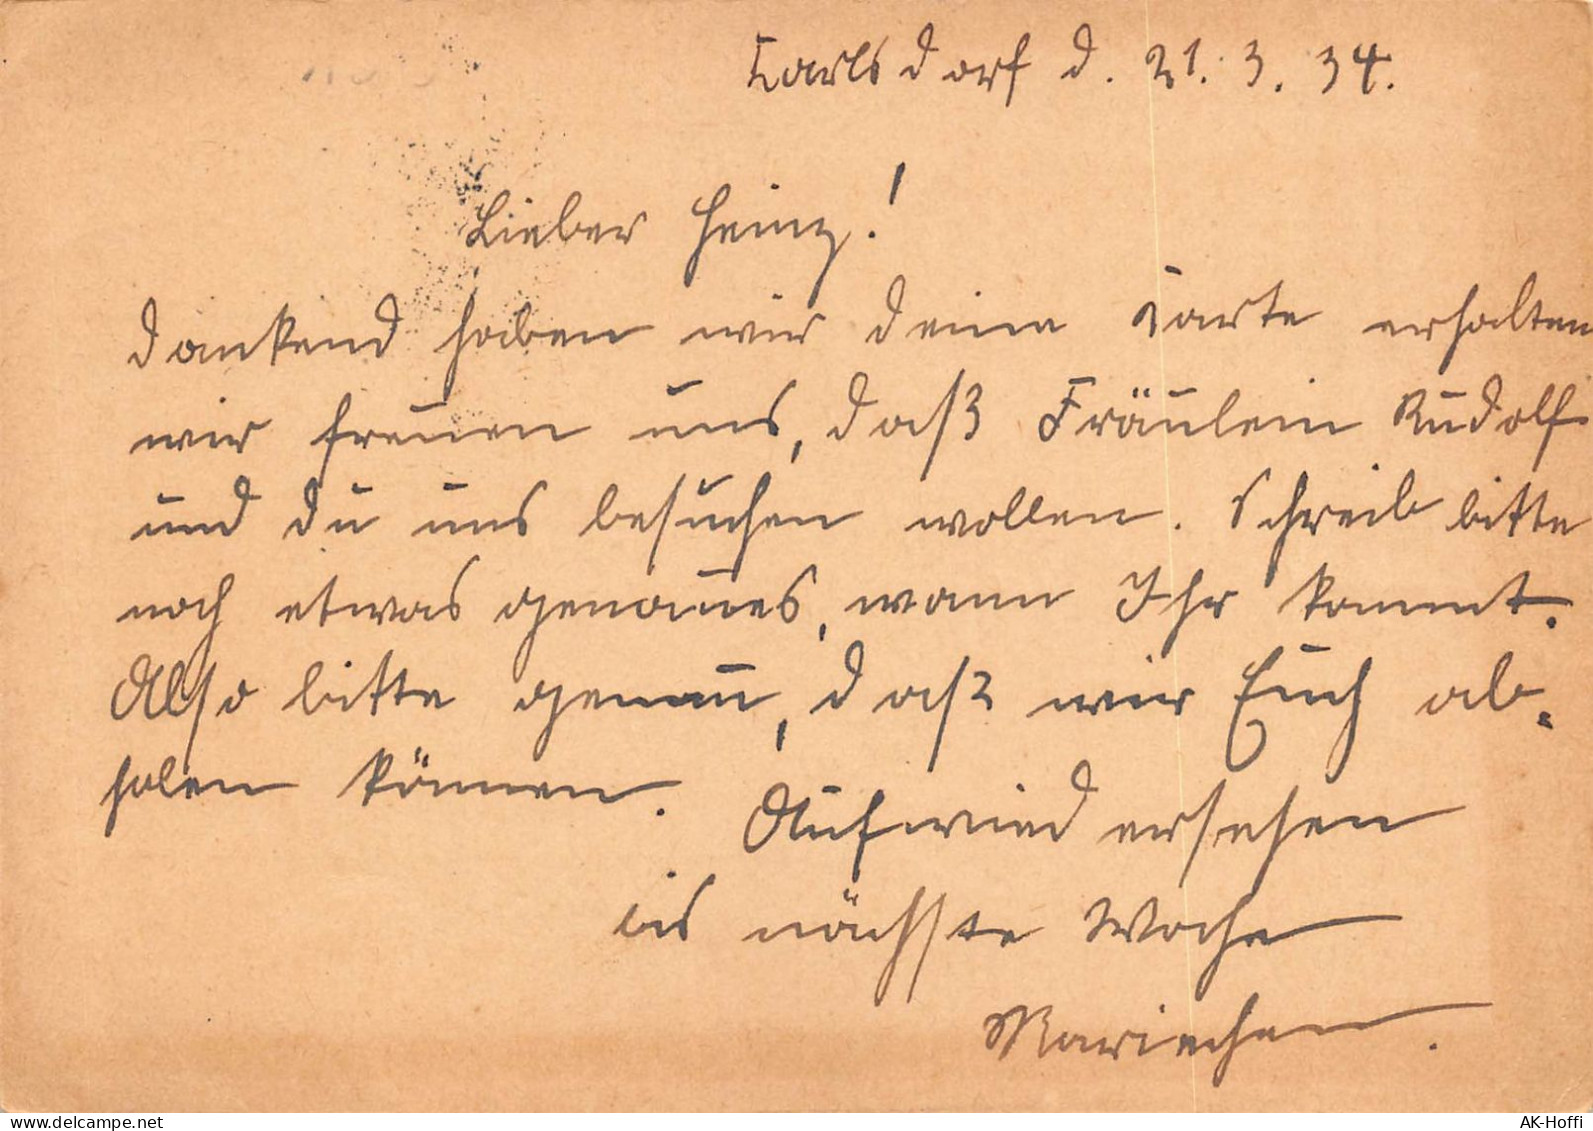 Karlsdorf d. 21. 3. 34.
Lieber Heinz!
dankend haben wir deine Karte erhalten
wir freuen uns, daß Fräulein Rudolf
und du uns besuchen wollen. Schreib bitte
noch etwas genaues, wann Ihr kommt.
Also bitte genau, daß wir Euch ab-
holen können. Aufwiedersehen
bis nächste Woche
Mariechen.
AK-Hoffi